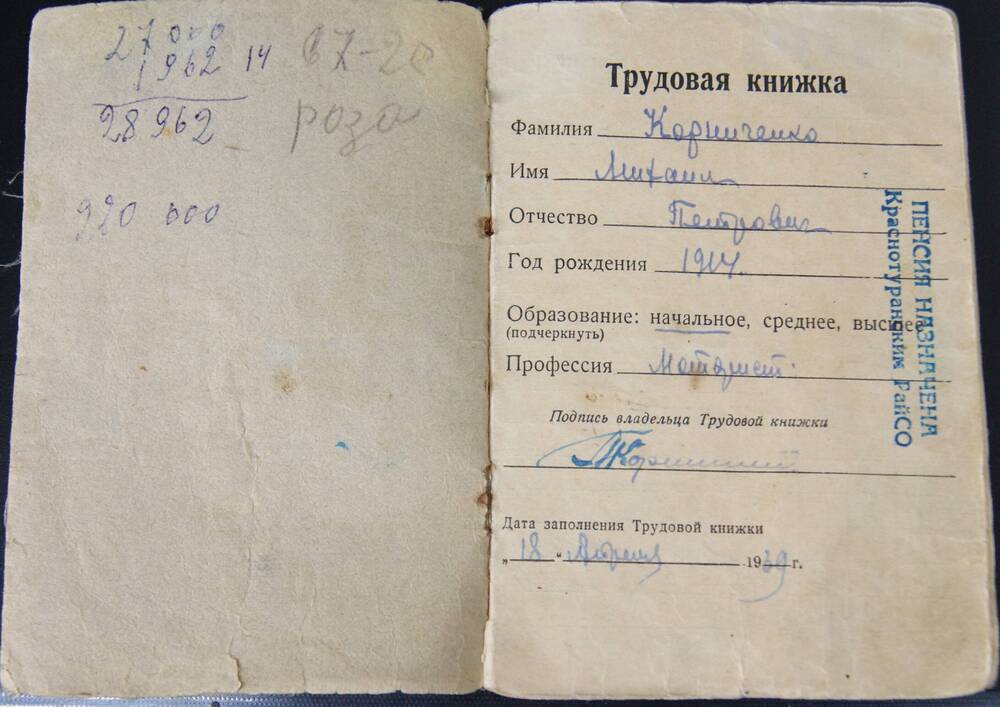 27 000
1962 14
28 962
67-20
роза
920 000
Трудовая книжка
Фамилия Корниченко
Имя Михаил
Отчество Петрович
Год рождения 1914.
Образование: начальное, среднее, высшее
(подчеркнуть)
Профессия
Подпись владельца Трудовой книжки
Дата заполнения Трудовой книжки
„18“ Апреля 1939 г.
ПЕНСИЯ НАЗНАЧЕНА
Краснотуранским РайСО